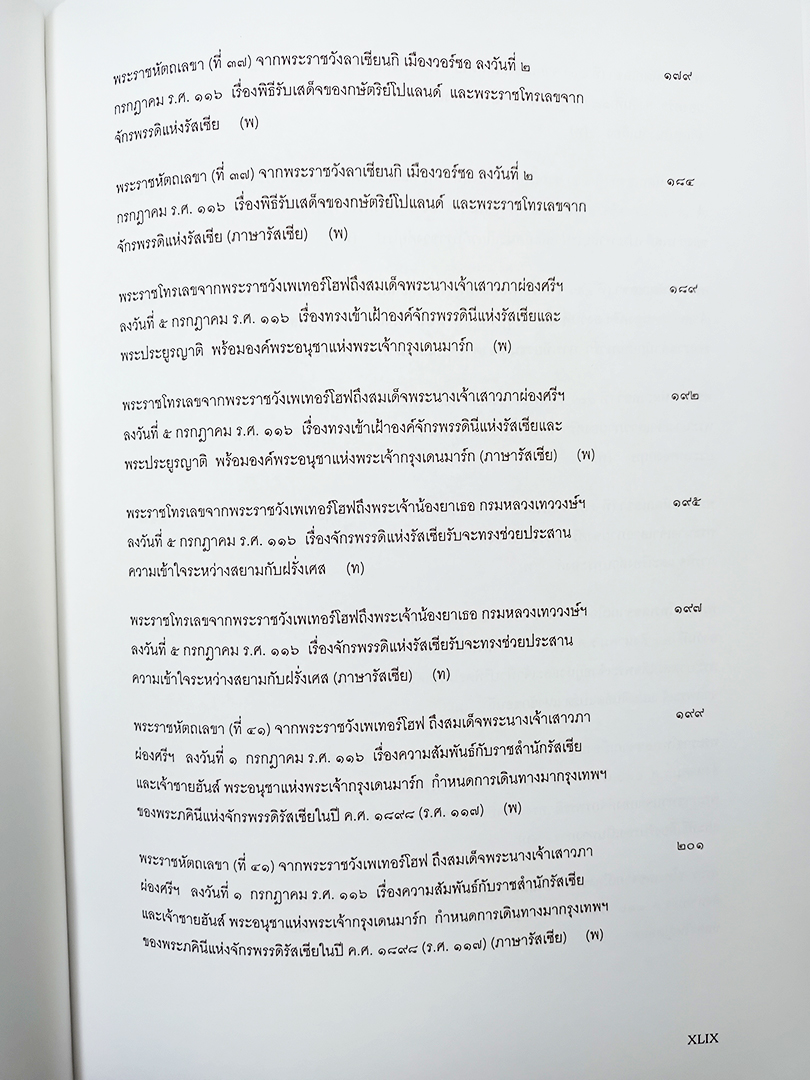 พระราชหัตถเลขา (ที่ ๓๗) จากพระราชวังลาเซียนกิ เมืองวอร์ซอ ลงวันที่ ๒ ๑๗๙
กรกฎาคม ร.ศ. ๑๑๖ เรื่องพิธีรับเสด็จของกษัตริย์โปแลนด์ และพระราชโทรเลขจาก
จักรพรรดิแห่งรัสเซีย (พ)
พระราชหัตถเลขา (ที่ ๓๗) จากพระราชวังลาเซียนกิ เมืองวอร์ซอ ลงวันที่ ๒ ๑๘๔
กรกฎาคม ร.ศ. ๑๑๖ เรื่องพิธีรับเสด็จของกษัตริย์โปแลนด์ และพระราชโทรเลขจาก
จักรพรรดิแห่งรัสเซีย (ภาษารัสเซีย) (พ)
พระราชโทรเลขจากพระราชวังเพเทอร์โฮฟถึงสมเด็จพระนางเจ้าเสาวภาผ่องศรีฯ ๑๘๙
ลงวันที่ ๕ กรกฎาคม ร.ศ. ๑๑๖ เรื่องทรงเข้าเฝ้าองค์จักรพรรดินีแห่งรัสเซียและ
พระประยูรญาติ พร้อมองค์พระอนุชาแห่งพระเจ้ากรุงเดนมาร์ก (พ)
พระราชโทรเลขจากพระราชวังเพเทอร์โฮฟถึงสมเด็จพระนางเจ้าเสาวภาผ่องศรีฯ ๑๙๒
ลงวันที่ ๕ กรกฎาคม ร.ศ. ๑๑๖ เรื่องทรงเข้าเฝ้าองค์จักรพรรดินีแห่งรัสเซียและ
พระประยูรญาติ พร้อมองค์พระอนุชาแห่งพระเจ้ากรุงเดนมาร์ก (ภาษารัสเซีย) (พ)
พระราชโทรเลขจากพระราชวังเพเทอร์โฮฟถึงพระเจ้าน้องยาเธอ กรมหลวงเทววงษ์ฯ ๑๙๕
ลงวันที่ ๕ กรกฎาคม ร.ศ. ๑๑๖ เรื่องจักรพรรดิแห่งรัสเซียรับจะทรงช่วยประสาน
ความเข้าใจระหว่างสยามกับฝรั่งเศส (ท)
พระราชโทรเลขจากพระราชวังเพเทอร์โฮฟถึงพระเจ้าน้องยาเธอ กรมหลวงเทววงษ์ฯ ๑๙๗
ลงวันที่ ๕ กรกฎาคม ร.ศ. ๑๑๖ เรื่องจักรพรรดิแห่งรัสเซียรับจะทรงช่วยประสาน
ความเข้าใจระหว่างสยามกับฝรั่งเศส (ภาษารัสเซีย) (ท)
พระราชหัตถเลขา (ที่ ๔๑) จากพระราชวังเพเทอร์โฮฟ ถึงสมเด็จพระนางเจ้าเสาวภา ๑๙๙
ผ่องศรีฯ ลงวันที่ ๑ กรกฎาคม ร.ศ. ๑๑๖ เรื่องความสัมพันธ์กับราชสำนักรัสเซีย
และเจ้าชายฮันส์ พระอนุชาแห่งพระเจ้ากรุงเดนมาร์ก กำหนดการเดินทางมากรุงเทพฯ
ของพระภคินีแห่งจักรพรรดิรัสเซียในปี ค.ศ. ๑๘๙๘ (ร.ศ. ๑๑๗) (พ)
พระราชหัตถเลขา (ที่ ๔๑) จากพระราชวังเพเทอร์โฮฟ ถึงสมเด็จพระนางเจ้าเสาวภา ๒๐๑
ผ่องศรีฯ ลงวันที่ ๑ กรกฎาคม ร.ศ. ๑๑๖ เรื่องความสัมพันธ์กับราชสำนักรัสเซีย
และเจ้าชายฮันส์ พระอนุชาแห่งพระเจ้ากรุงเดนมาร์ก กำหนดการเดินทางมากรุงเทพฯ
ของพระภคินีแห่งจักรพรรดิรัสเซียในปี ค.ศ. ๑๘๙๘ (ร.ศ. ๑๑๗) (ภาษารัสเซีย) (พ)
XLIX